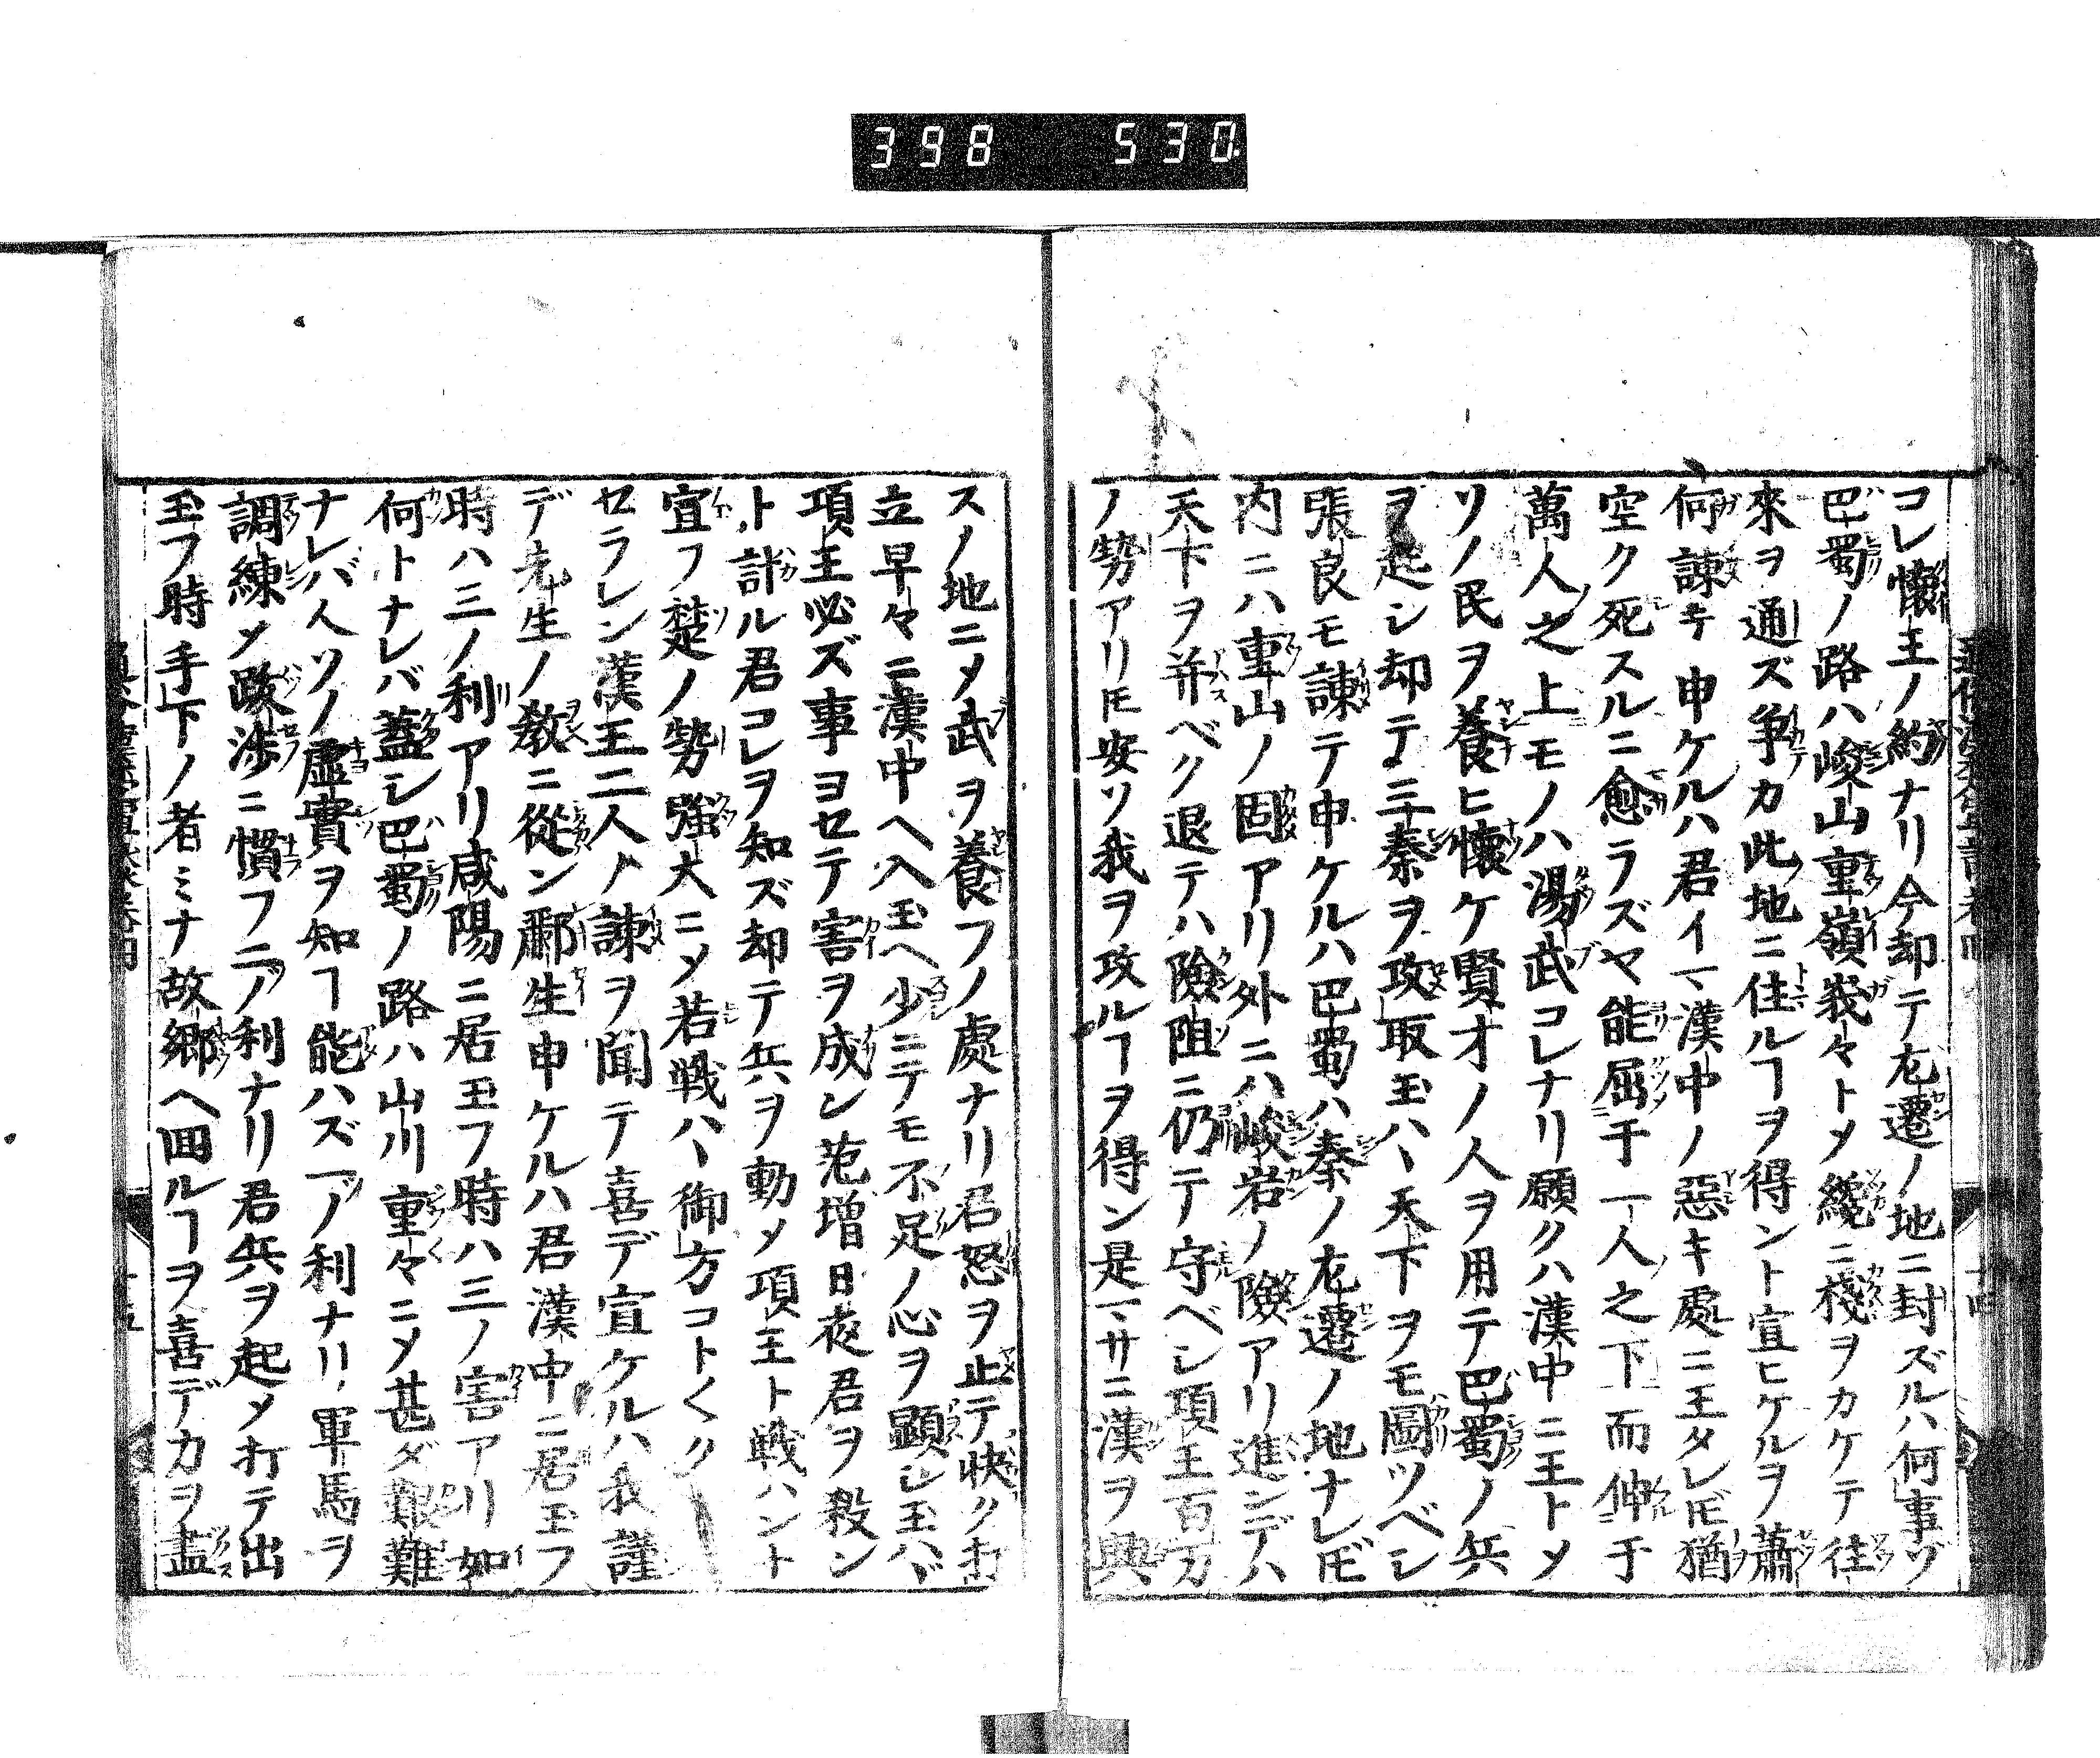 398 530
コレ懷王ノ約ナリ今却テ左遷ノ地ニ封ズルハ何事ゾ
巴蜀ノ路ハ峻山重嶺峩々トメ纔ニ棧ヲカケテ往
來ヲ通ズ争カ此地ニ住ルヿヲ得ント宣ヒケルヲ蕭
何諫キ申ケルハ君イマ漢中ノ惡キ處ニ王タレ𪜈猶
空ク死スルニ愈ラズヤ能屈于一人之下而伸于
萬人之上モノハ湯武コレナリ願クハ漢中ニ王トメ
ソノ民ヲ養ヒ懷ケ賢才ノ人ヲ用テ巴蜀ノ兵
ヲ起シ却テ三秦ヲ攻取玉ハヽ天下ヲモ圖ツベシ
張良モ諫テ申ケルハ巴蜀ハ秦ノ左遷ノ地ナレ𪜈
内ニハ重山ノ固アリ外ニハ峻岩ノ險アリ進ンデハ
天下ヲ并ベク退テハ險阻ニ仍テ守ベシ項王百万
ノ勢アリ𪜈安ソ我ヲ攻ルヿヲ得ン是マサニ漢ヲ興
スノ地ニメ武ヲ養フノ處ナリ君怒ヲ止テ快ク打
立早々ニ漢中ヘ入玉ヘ少ニテモ不足ノ心ヲ顕シ玉ハヾ
項王必ズ事ヨセテ害ヲ成シ范増日夜君ヲ殺ン
ト計ル君コレヲ知ズ却テ兵ヲ動メ項王ト戦ハント
宣フ楚ノ勢強大ニメ若戦ハヽ御方コト〱ク
セラレン漢王二人ノ諫ヲ聞テ喜デ宣ケルハ我謹
デ先生ノ教ニ從ン酈生申ケルハ君漢中ニ居玉フ
時ハ三ノ利アリ咸陽ニ居玉フ時ハ三ノ害アリ如
何トナレバ蓋シ巴蜀ノ路ハ山川重々ニメ甚ダ艱難
ナレバ人ソノ虚實ヲ知ヿ能ハズ一ノ利ナリ軍馬ヲ
調練メ跋渉ニ慣フ二ノ利ナリ君兵ヲ起メ打テ出
玉フ時手下ノ者ミナ故郷ヘ回ルヿヲ喜デ力ヲ盡